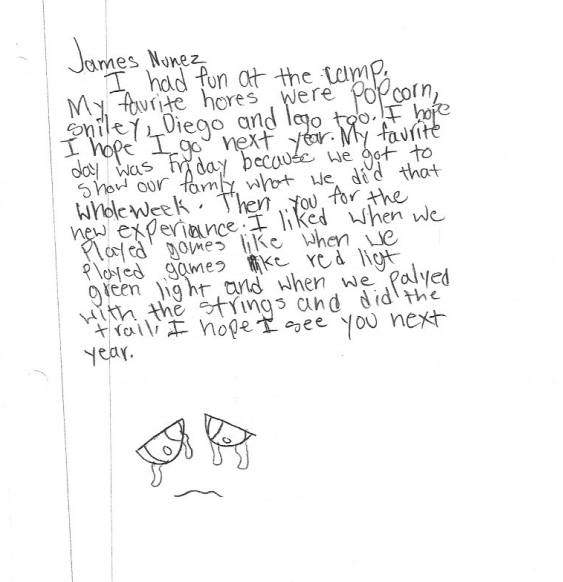 James Nunez
I had fun at the camp.
My favrite hores were Popcorn,
smiley, Diego and lego too. I hope
I hope I go next year. My favrite
day was Friday because we got to
show our famly what we did that
whole week. Then you for the
new experiance. I liked when we
Played games like when we
played games like red ligt
green light and when we palyed
with the strings and did the
trail. I hope I see you next
year.